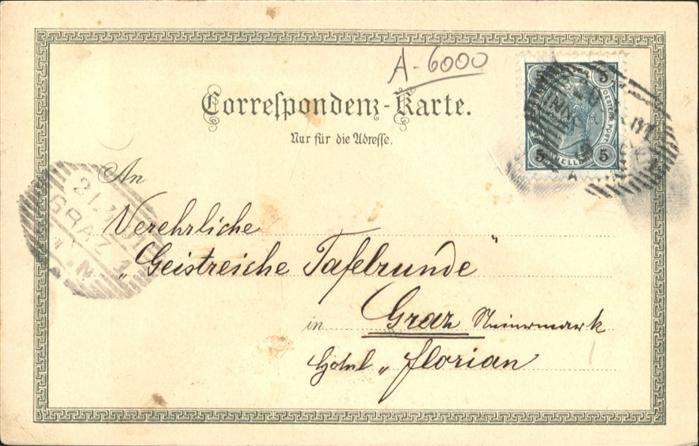 A-6000
Correspondenz-Karte.
Nur für die Adresse.
5 5
5 HELLER 5
An
GRAZ 1
N
Verehrliche
„Geistreiche Tafelrunde"
in Graz Steiermark
Hotel „Florian